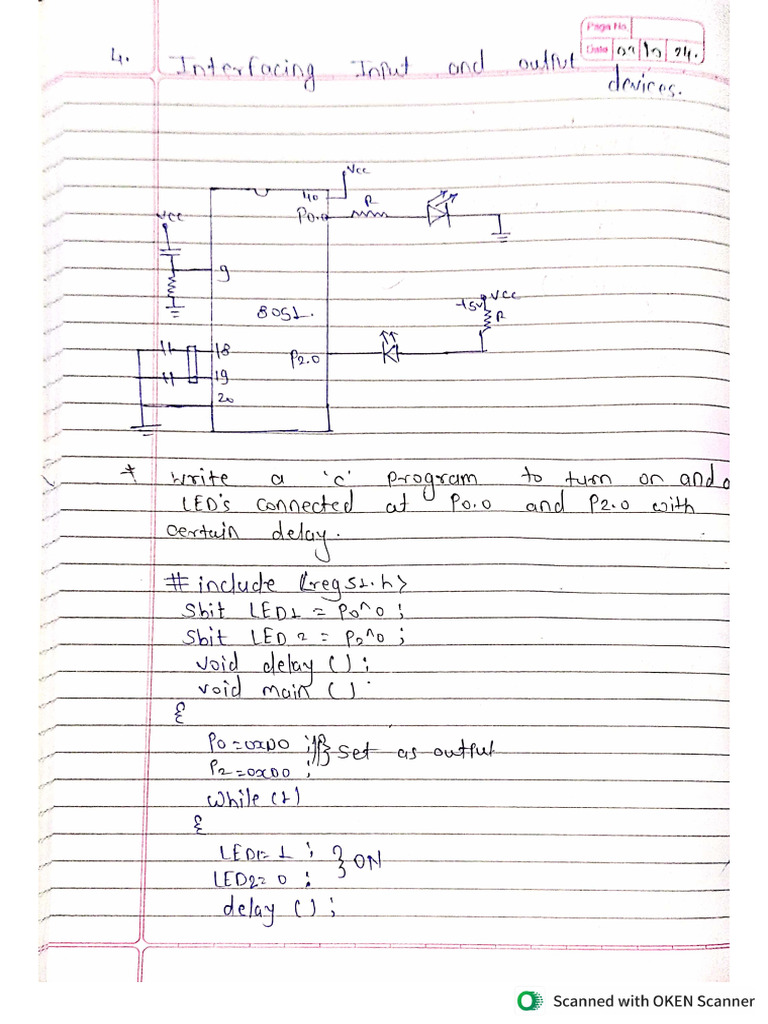 Page No.
Date 09 10 24.
4. Interfacing Input and output
devices.
Vcc
40
P0.0
R
Vcc
9
8051.
+5V Vcc
R
18
P2.0
19
20
* Write a 'c' program to turn on and o
LED's connected at P0.0 and P2.0 with
certain delay.
# include <reg51.h>
Sbit LED1 = P0^0 ;
Sbit LED 2 = P2^0 ;
void delay ( ) ;
void main ( )
{
P0 = 0x00 ; //} Set as output
P2 = 0x00 ;
while (1)
{
LED1= 1 ; } ON
LED2= 0 ;
delay ( ) ;
Scanned with OKEN Scanner